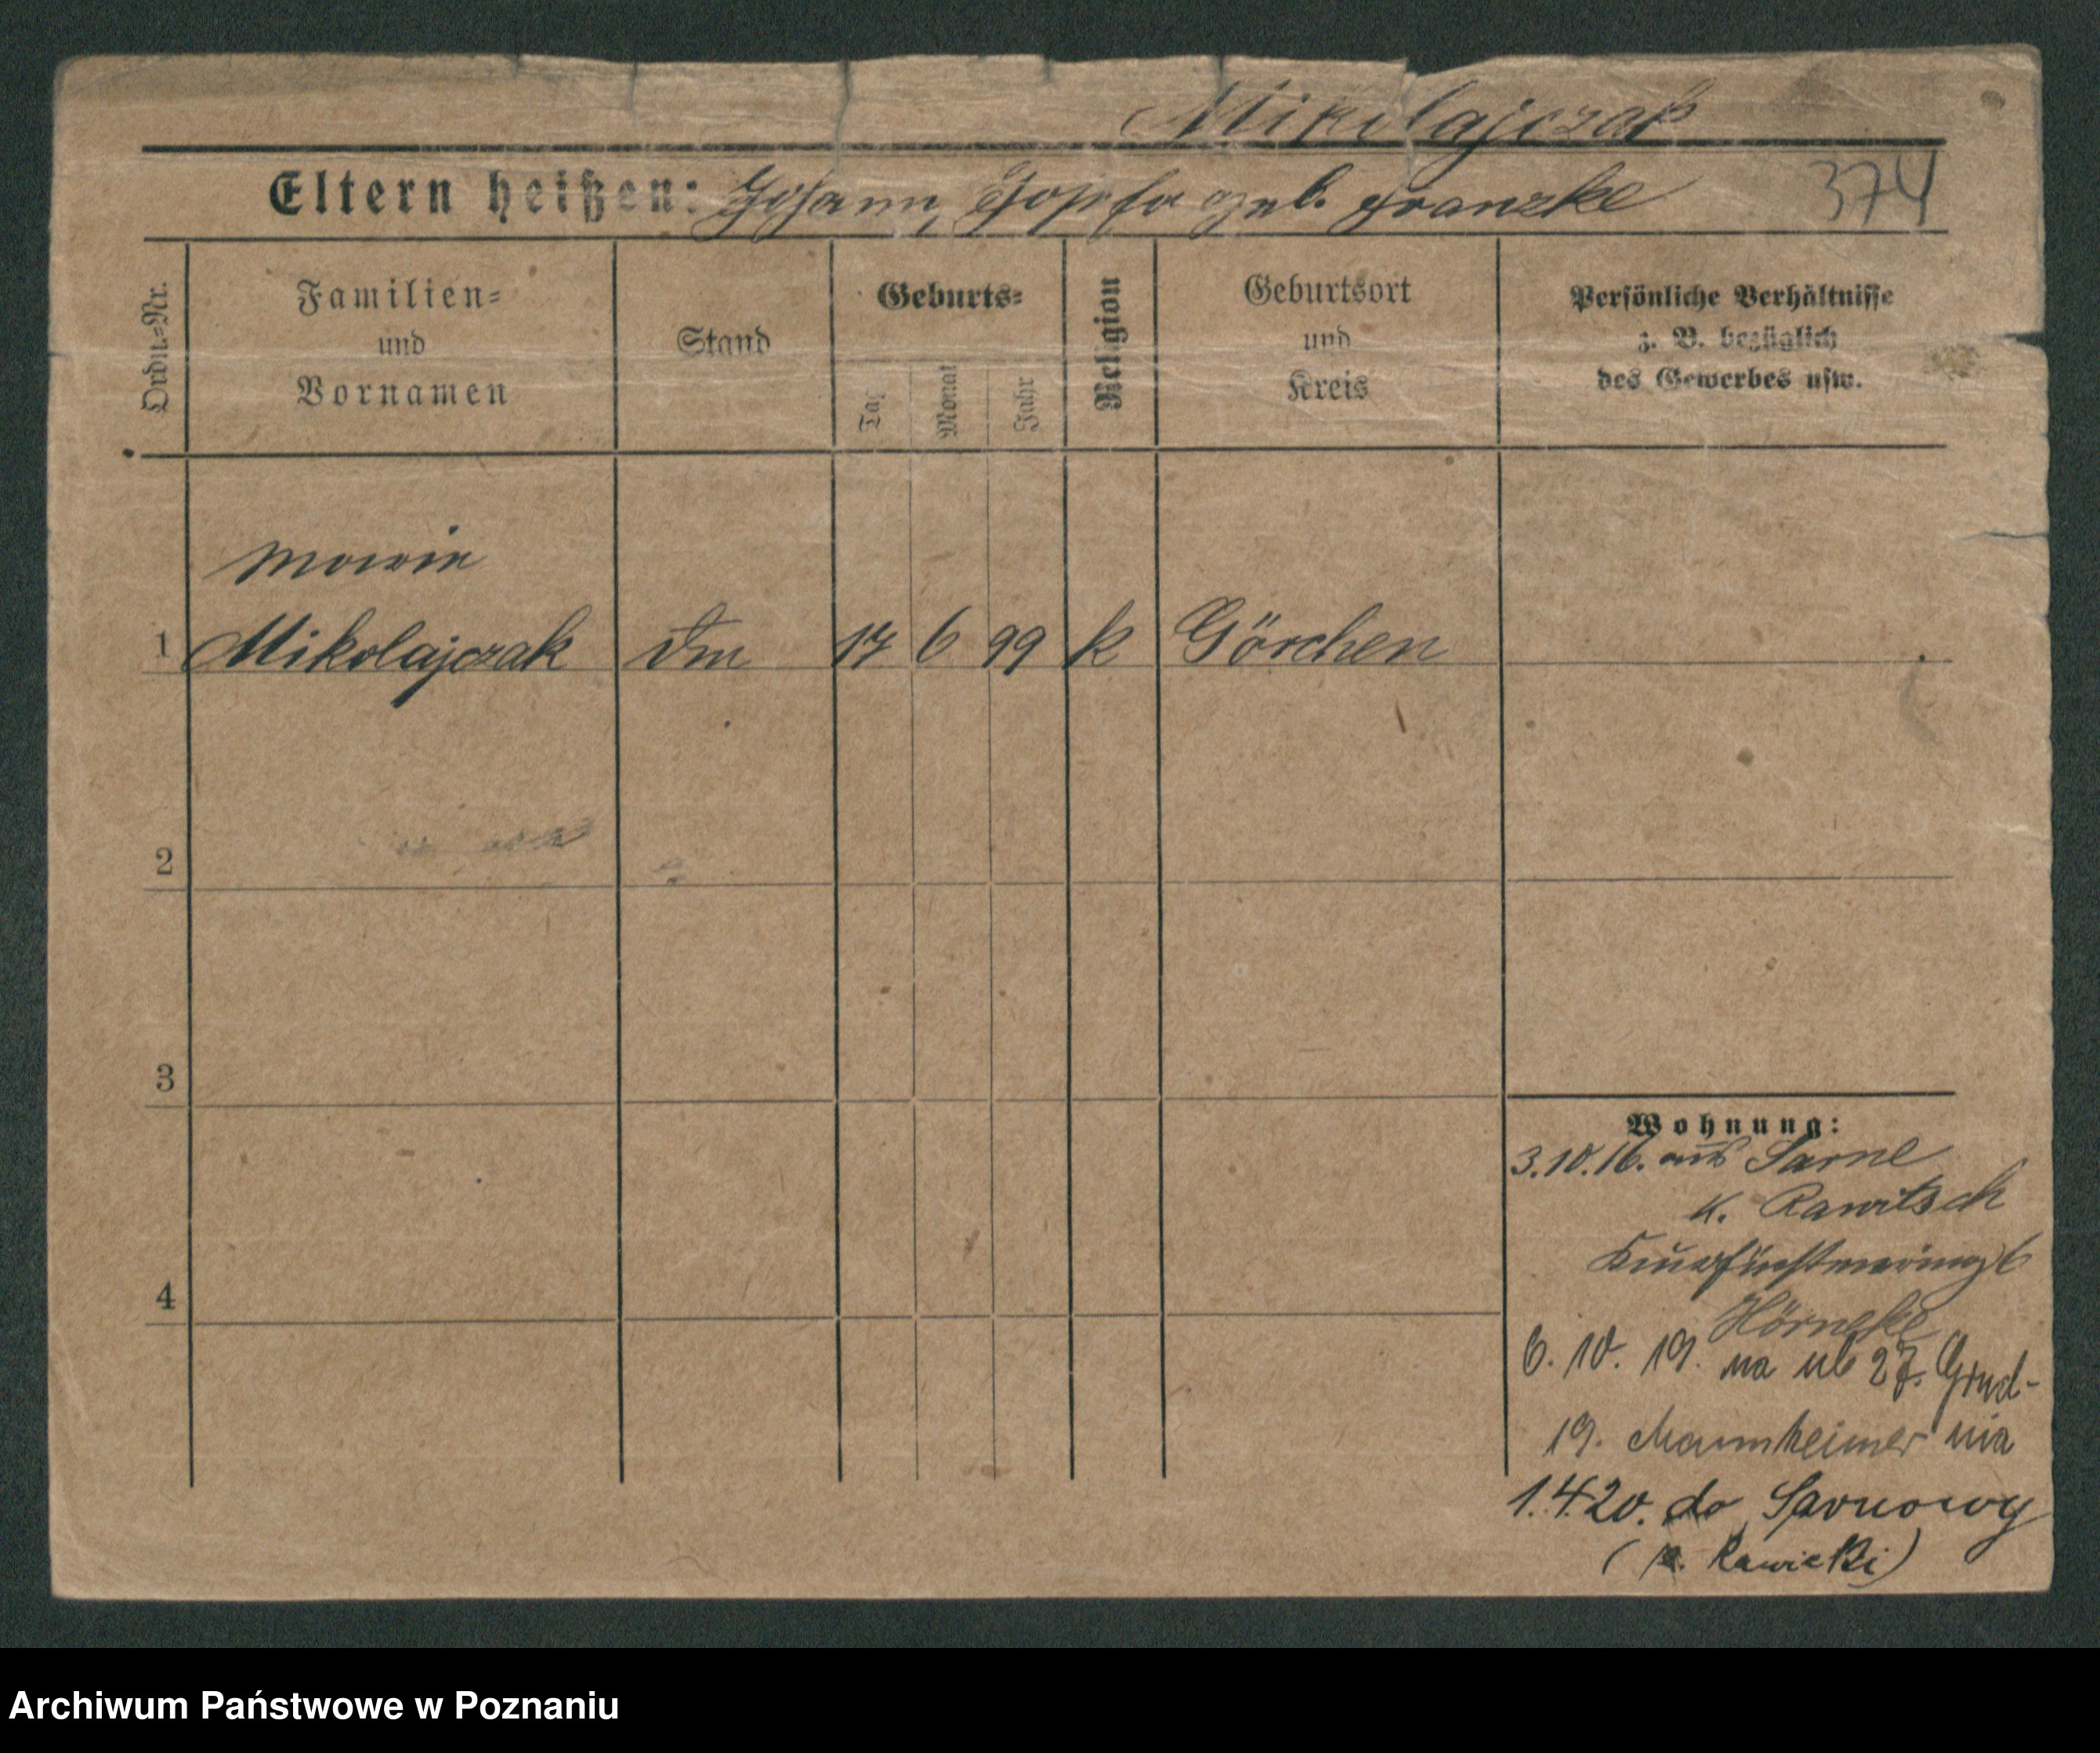 Mikolajczak
Eltern heißen: Johann, Josefa geb. Franzke
374
Ordn.=Nr.
Familien=
und
Vornamen
Stand
Geburts=
Tag
Monat
Jahr
Religion
Geburtsort
und
Kreis
Persönliche Verhältnisse
z. B. bezüglich
des Gewerbes usw.
Marie
1 Mikolajczak Dm 17 6 99 k Görchen
2
3
4
Wohnung:
3.10.16. aus Sarne
K. Rawitsch
6
6. 10. 19. na ul 27. Grud-
19. Mannheimer nia
1.4.20. do Sarnowy
(p. Rawicki)
Archiwum Państwowe w Poznaniu